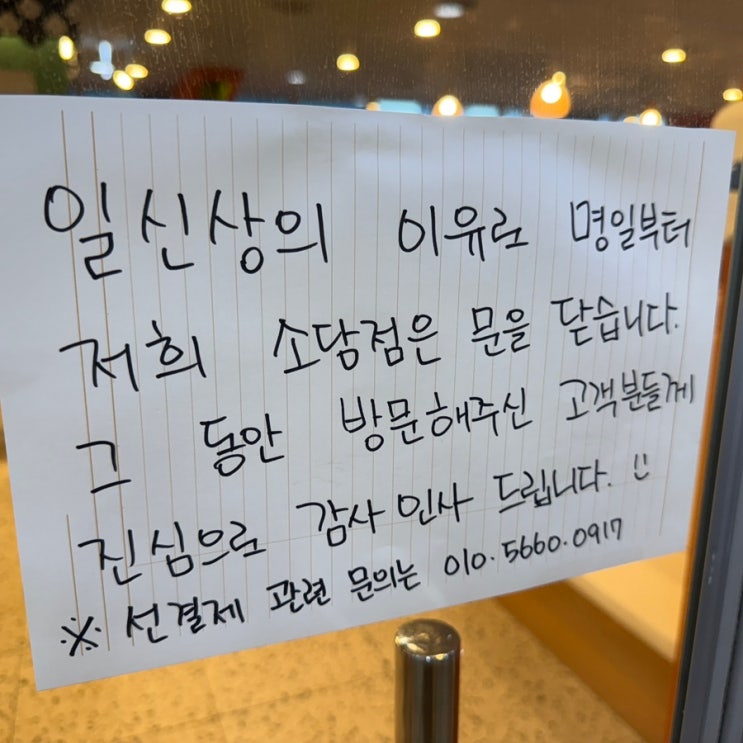 일신상의 이유로 명일부터
저희 소담점은 문을 닫습니다.
그 동안 방문해주신 고객분들께
진심으로 감사인사 드립니다. :)
※ 선결제 관련 문의는 010.5660.0917